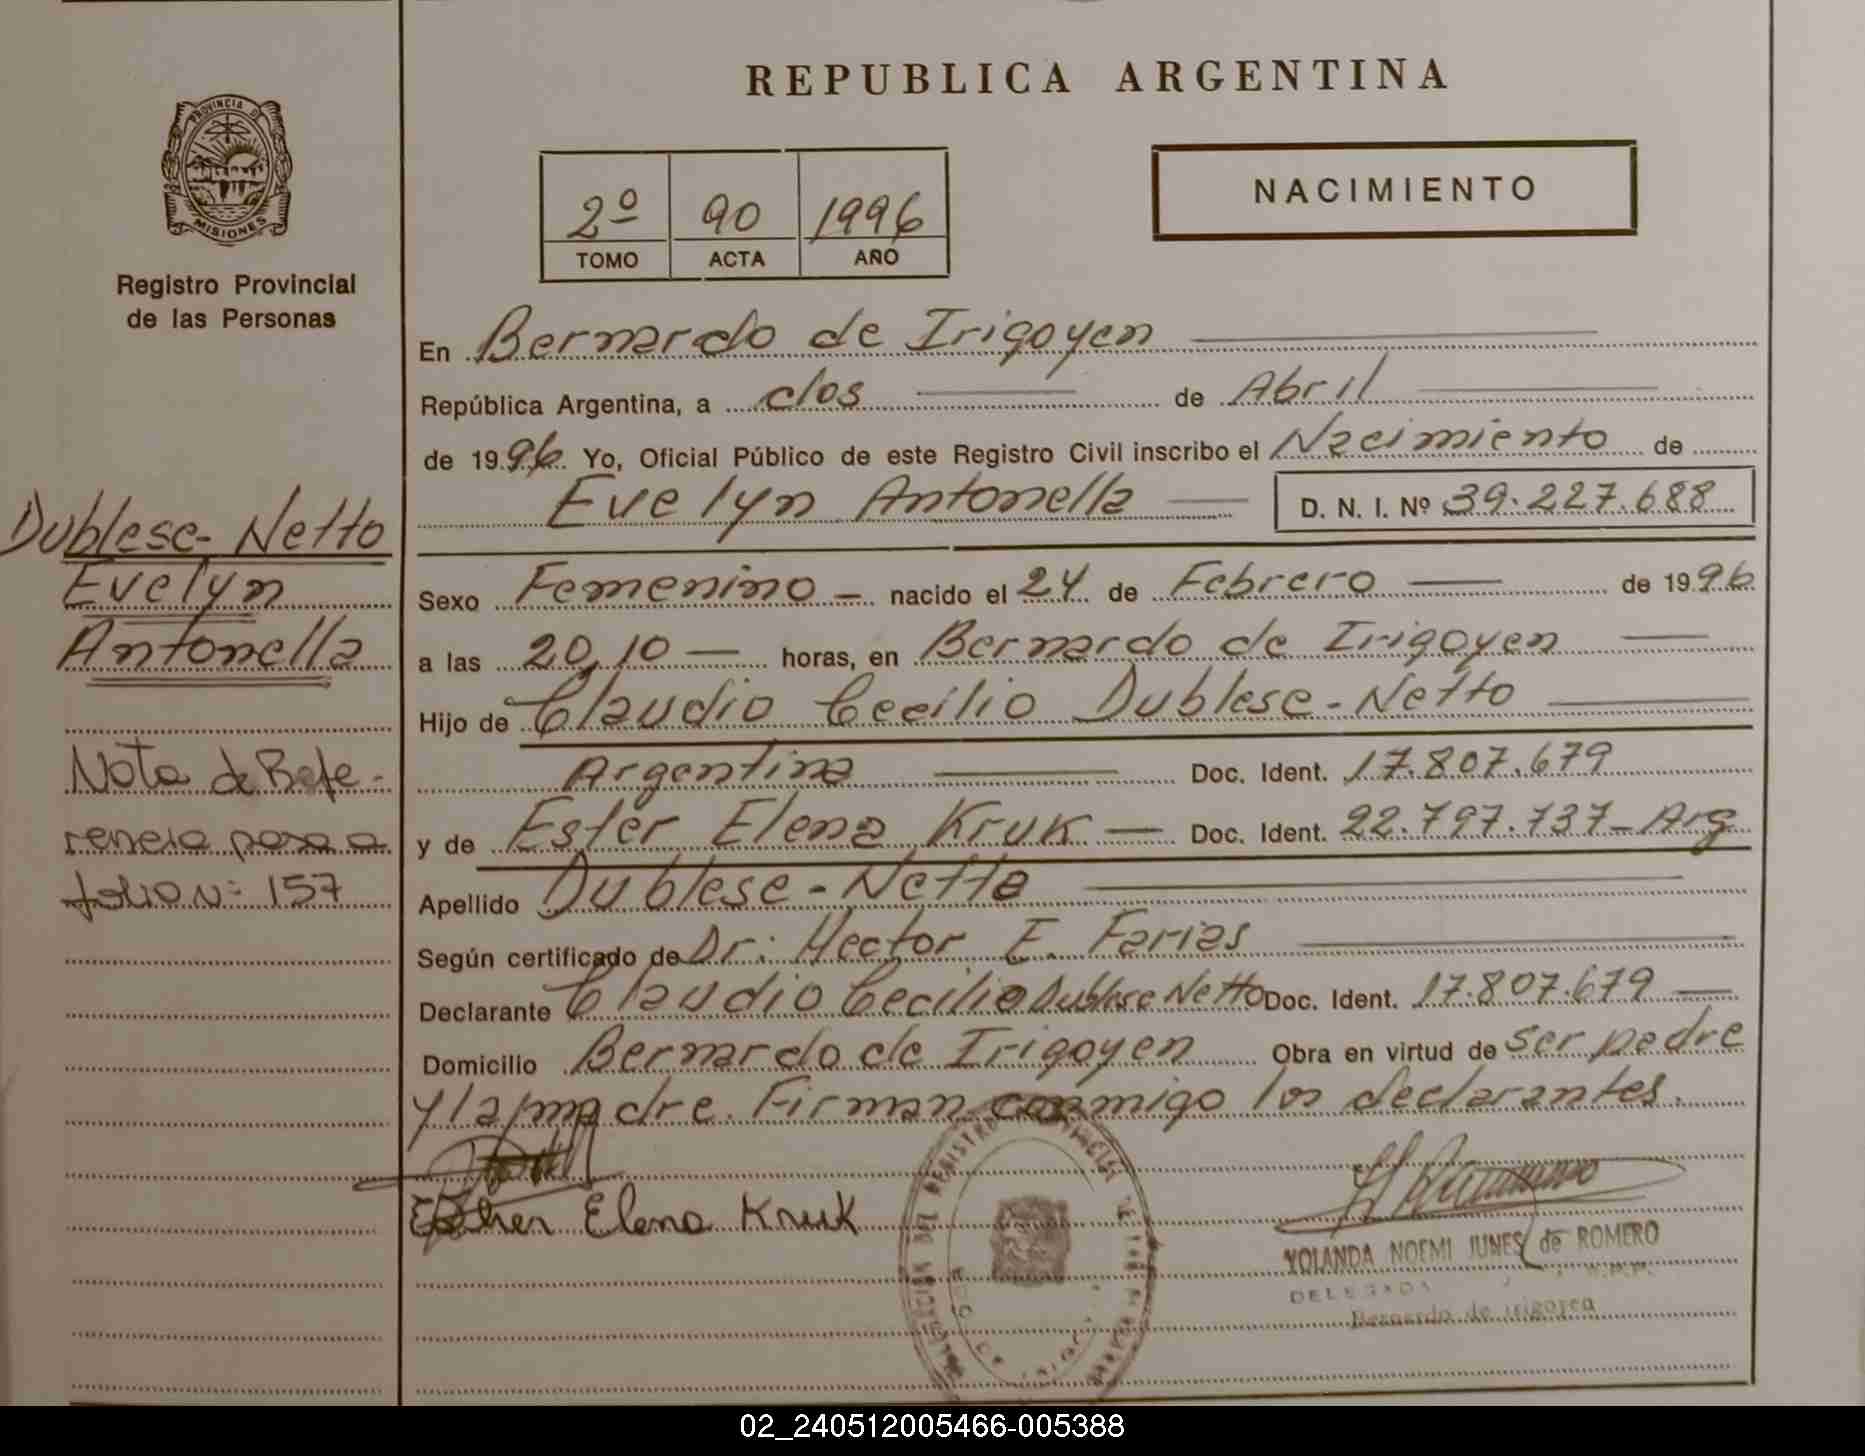 REPUBLICA ARGENTINA
PROVINCIA DE
MISIONES
Registro Provincial
de las Personas
2º 90 1996
TOMO ACTA AÑO
NACIMIENTO
En Bernardo de Irigoyen
República Argentina, a dos de Abril
de 1996 Yo, Oficial Público de este Registro Civil inscribo el Nacimiento de
Evelyn Antonella D. N. I. Nº 39.227.688
Sexo Femenino nacido el 24 de Febrero de 1996
a las 20,10 horas, en Bernardo de Irigoyen
Hijo de Claudio Cecilio Dublese-Netto
Argentina Doc. Ident. 17.807.679
y de Ester Elena Kruk Doc. Ident. 22.797.737-Arg
Apellido Dublese-Netto
Según certificado de Dr: Hector E. Farias
Declarante Claudio Cecilio Dublese Netto Doc. Ident. 17.807.679
Domicilio Bernardo de Irigoyen Obra en virtud de ser padre
y la madre. Firman conmigo los declarantes.
Elena Kruk
YOLANDA NOEMI JUNES de ROMERO
DELEGADA
Bernardo de Irigoyen
Dublese-Netto
Evelyn
Antonella
Nota de Refe-
rencia pasa a
folio Nº 157
02_240512005466-005388